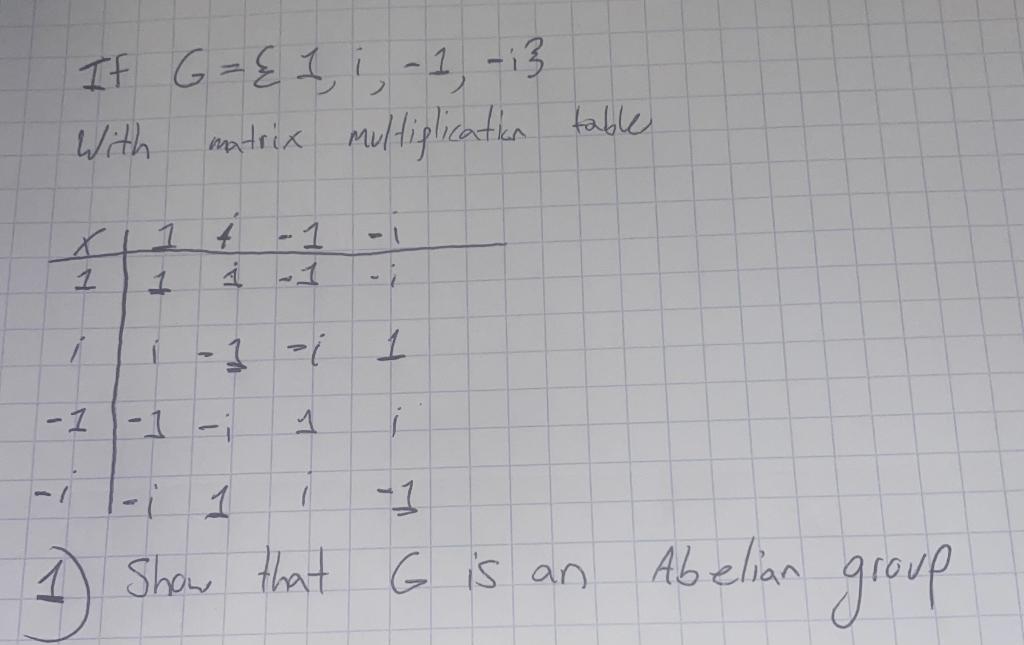 If G = { 1, i, -1, -i }
With matrix multiplication table
x | 1 i -1 -i
1 | 1 i -1 -i
i | i -1 -i 1
-1 | -1 -i 1 i
-i | -i 1 i -1
1) Show that G is an Abelian group